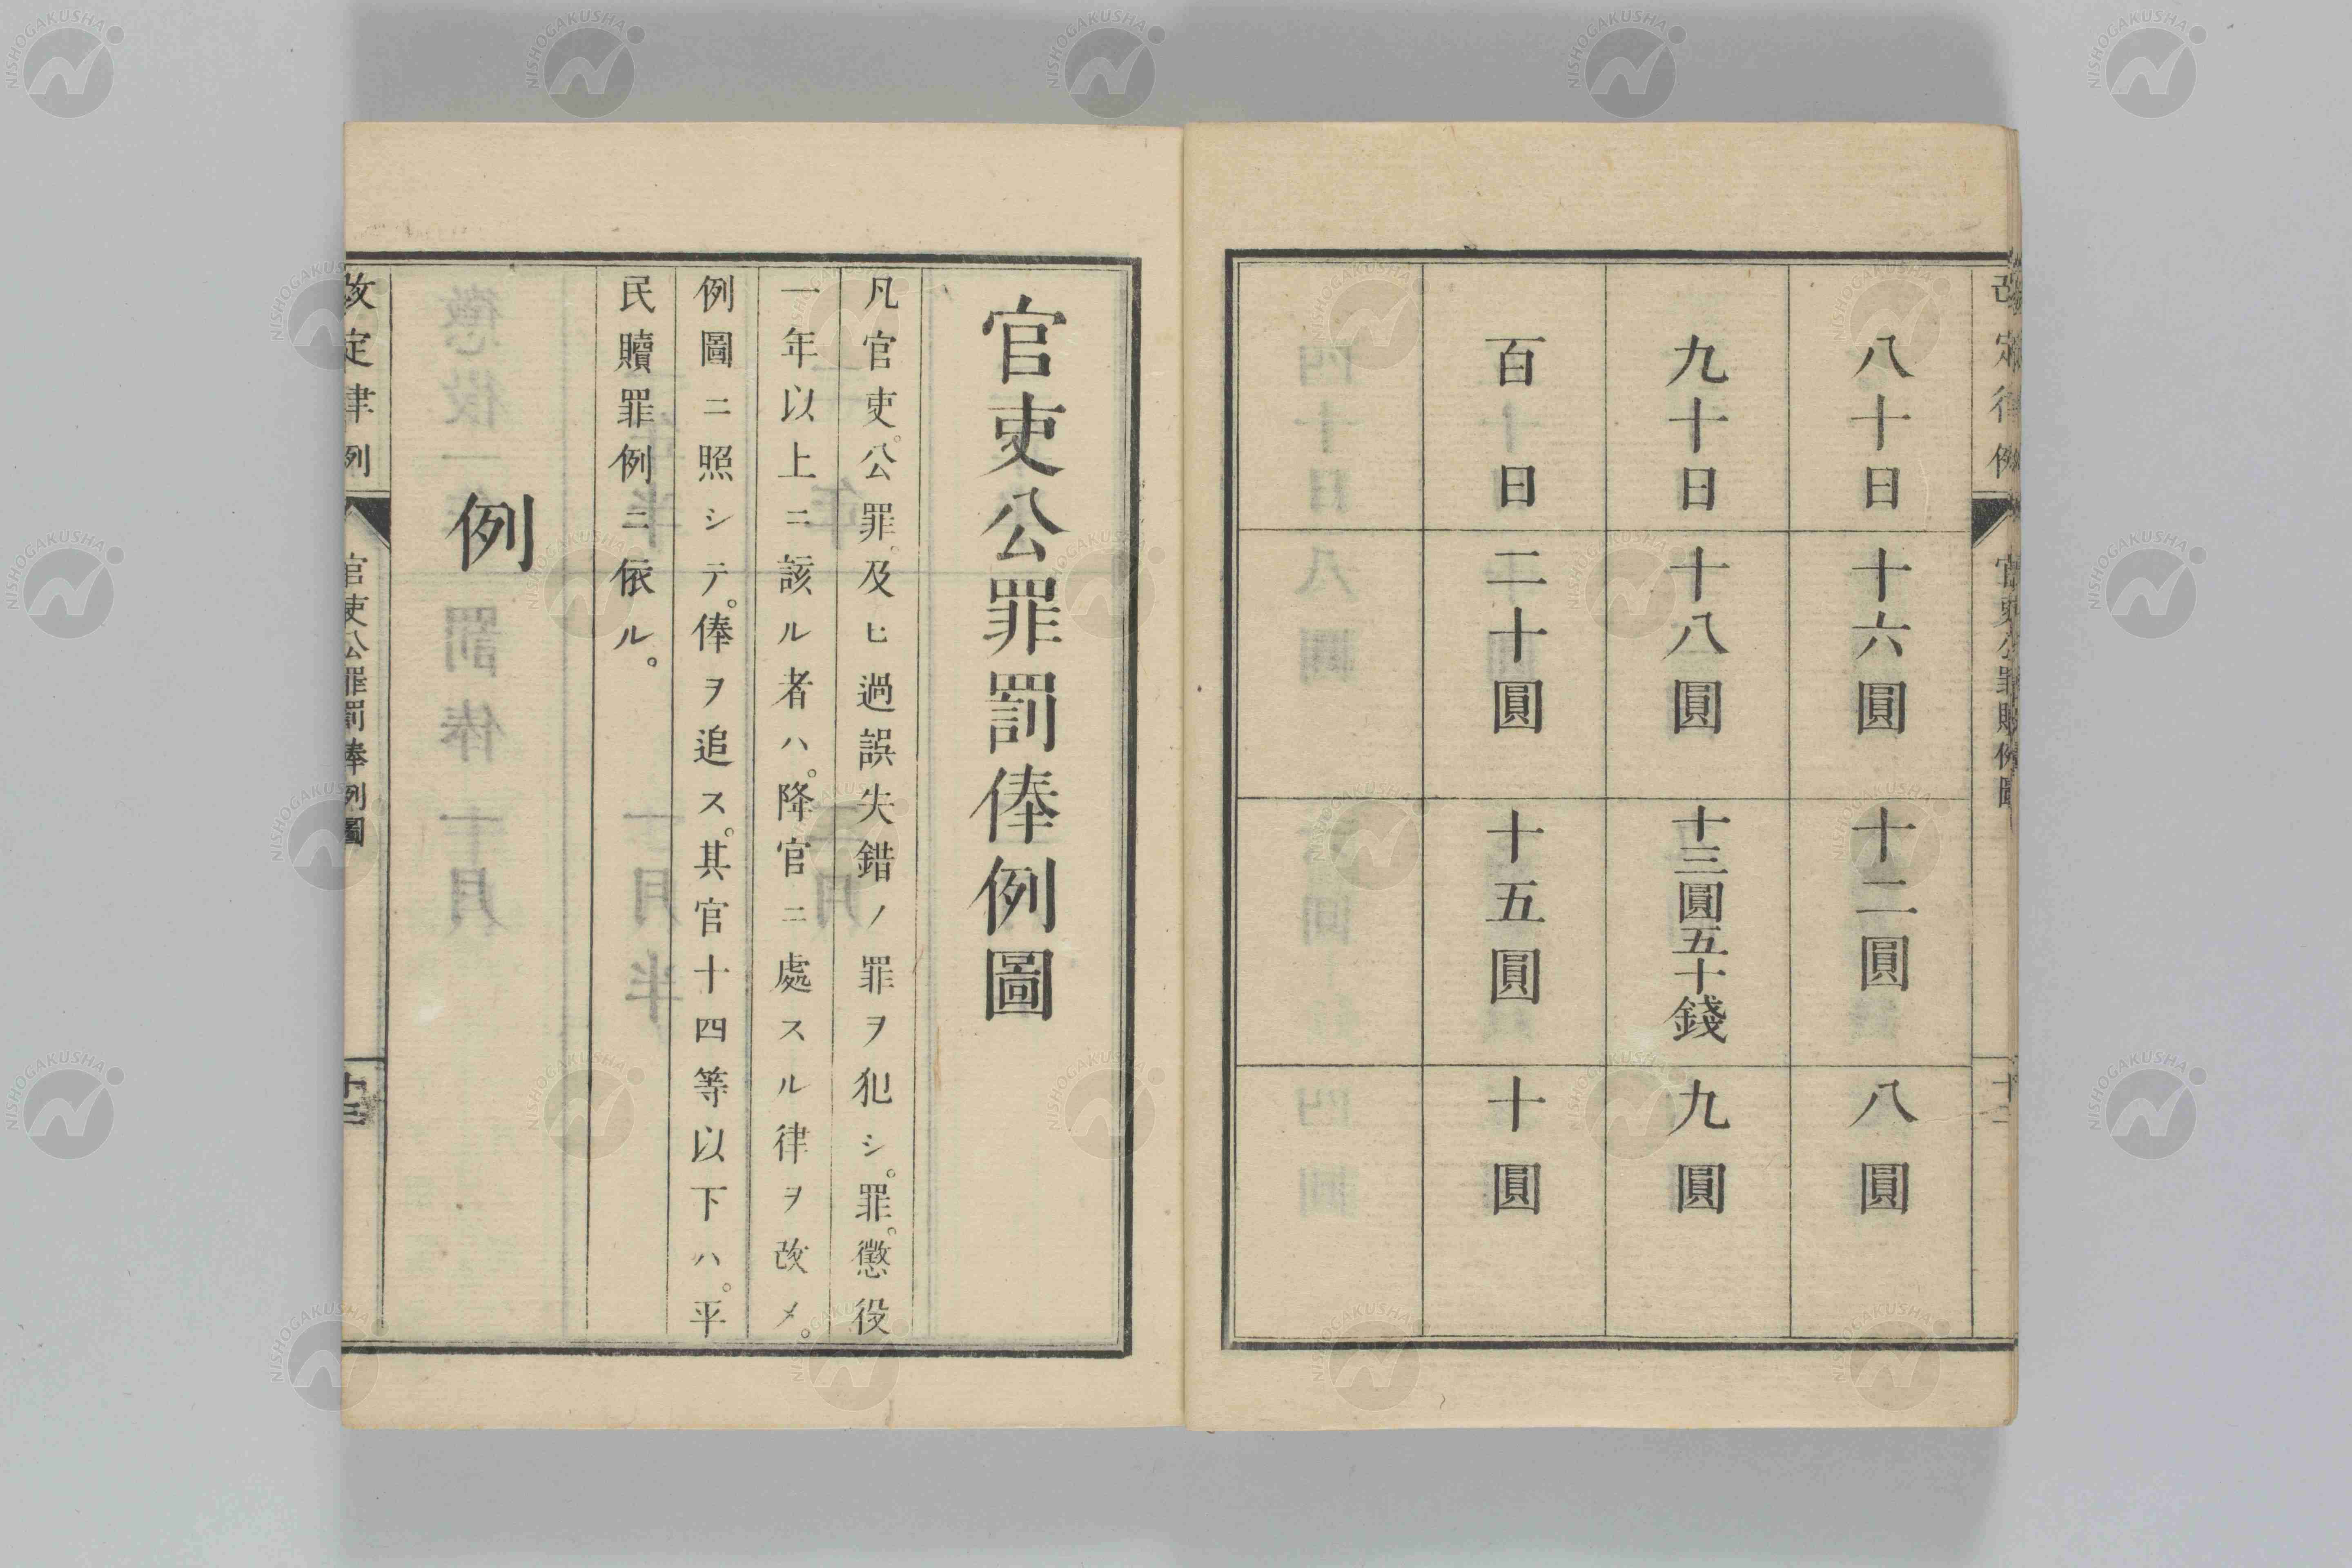 改定律例
八十日
十六圓
十二圓
八圓
九十日
十八圓
十三圓五十錢
九圓
百日
二十圓
十五圓
十圓
官吏公罪罰俸例圖
凡官吏。公罪。及ヒ過誤失錯ノ罪ヲ犯シ。罪。懲役
一年以上ニ該ル者ハ。降官ニ處スル律ヲ改メ。
例圖ニ照シテ。俸ヲ追ス。其官十四等以下ハ。平
民贖罪例ニ依ル。
例
改定律例
官吏公罪罰俸例圖
十三
NISHOGAKUSHA